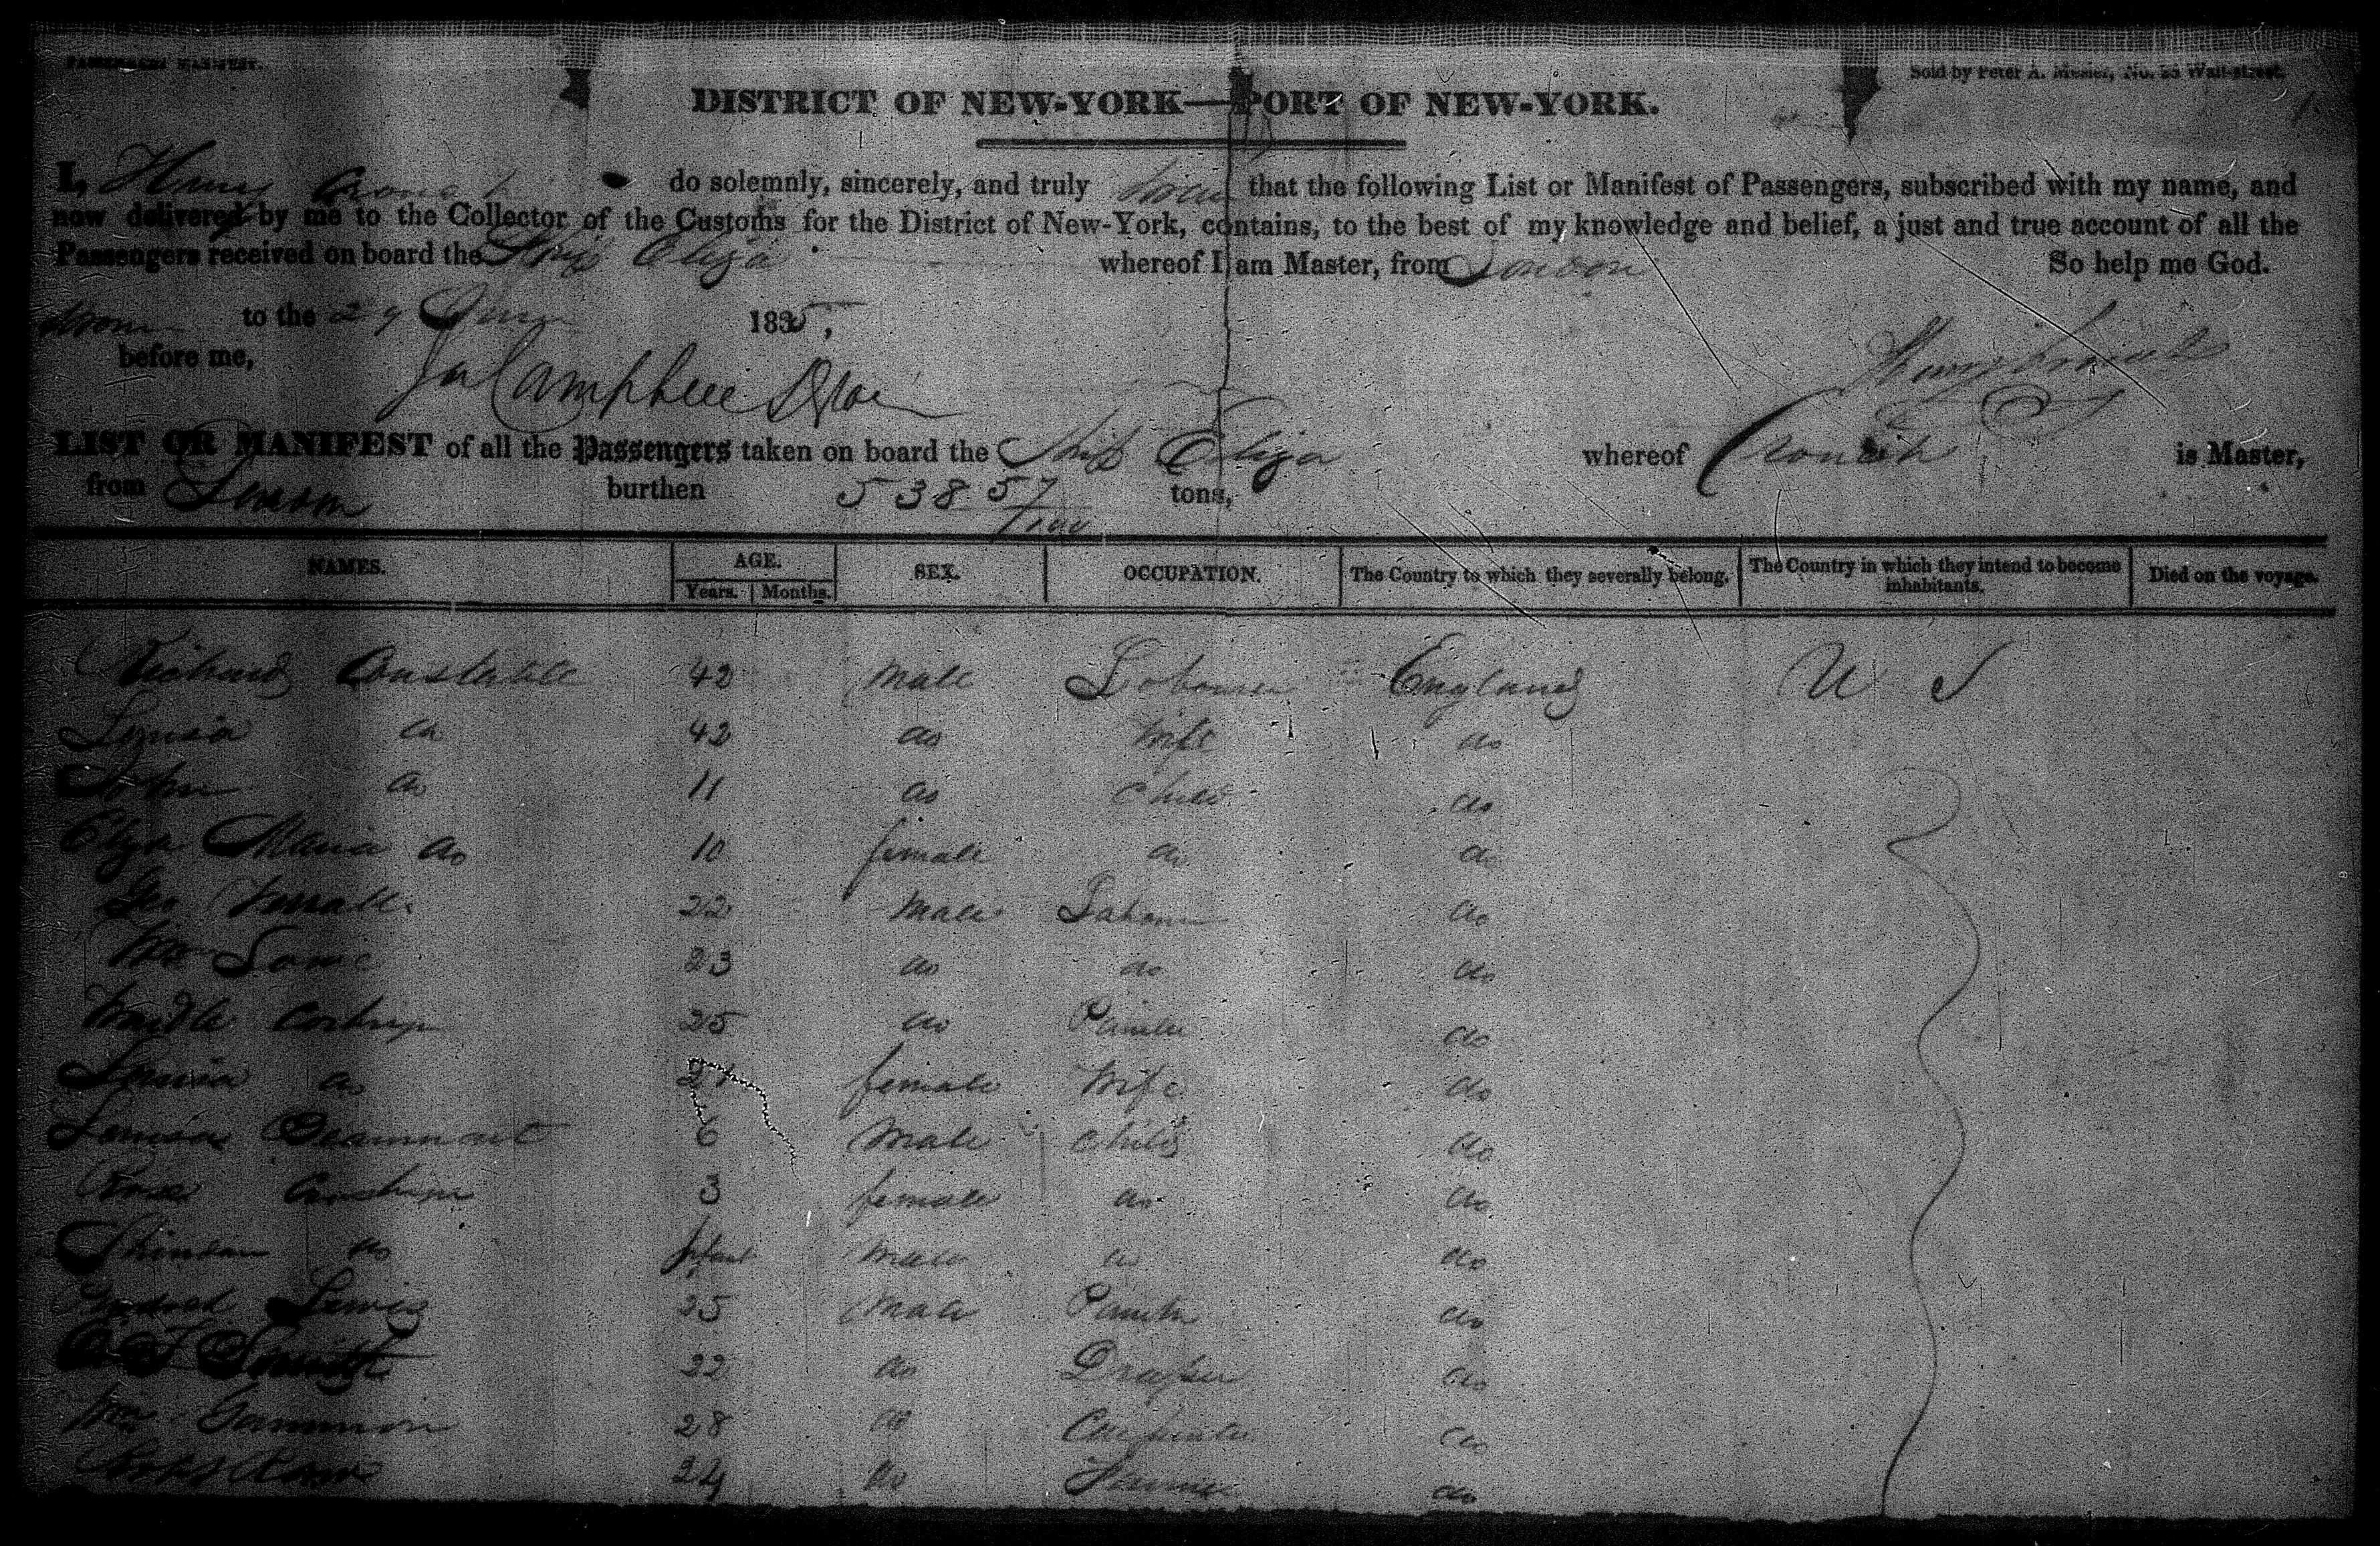 PASSENGERS MANIFEST.
Sold by Peter A. Mesier, No. 28 Wall-street.
DISTRICT OF NEW-YORK—PORT OF NEW-YORK.
I, Henry do solemnly, sincerely, and truly that the following List or Manifest of Passengers, subscribed with my name, and
now delivered by me to the Collector of the Customs for the District of New-York, contains, to the best of my knowledge and belief, a just and true account of all the
Passengers received on board the Ship Eliza whereof I am Master, from London So help me God.
Sworn to the 29 1835,
before me,
LIST OR MANIFEST of all the Passengers taken on board the Ship Eliza whereof is Master,
from London burthen 538 57/100 tons,
NAMES. AGE. SEX. OCCUPATION. The Country to which they severally belong. The Country in which they intend to become inhabitants. Died on the voyage.
Years. Months.
Richard Constable 42 male Labourer England U S
Louisa do 42 do Wife do
John do 11 do Child do
Eliza Maria do 10 female do do
Geo 22 Male Labourer do
Wm 23 do do do
25 do Painter do
Louisa do 21 female Wife do
Louisa Beaumont 6 Male Child do
3 female do do
do Infant Male do do
Lewis 25 Male Painter do
Smith 22 do Draper do
Wm Gammon 28 do Carpenter do
24 do Farmer do